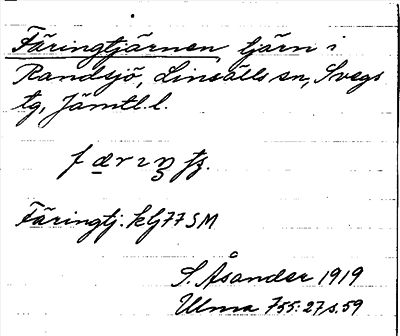 Färingtjärnen tjärn i
Randsjö, Linsälls sn, Svegs
tg, Jämtl. l.
færıŋ tj.
Färingtj. klj 77 SM
S. Åsander 1919
Ulma 755:27, s. 59